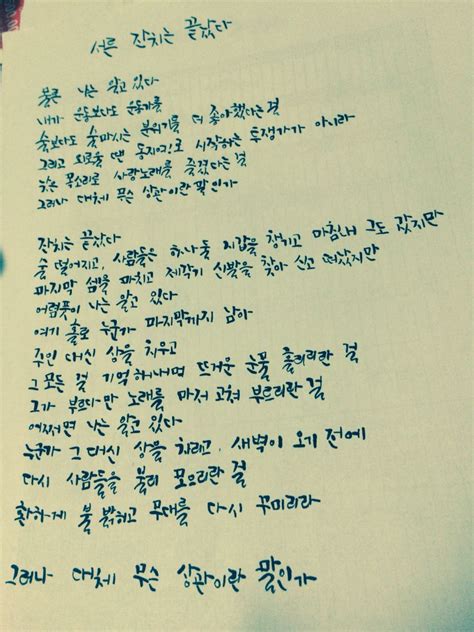 서른 잔치는 끝났다
물론 나는 알고 있다
내가 운동보다도 운동가를
술보다도 술 마시는 분위기를 더 좋아했다는 걸
그리고 외로울 땐 동지여!로 시작하는 투쟁가가 아니라
낮은 목소리로 사랑노래를 즐겼다는 걸
그러나 대체 무슨 상관이란 말인가
잔치는 끝났다
술 떨어지고, 사람들은 하나 둘 지갑을 챙기고 마침내 그도 갔지만
마지막 셈을 마치고 제각기 신발을 찾아 신고 떠났지만
어렴풋이 나는 알고 있다
여기 홀로 누군가 마지막까지 남아
주인 대신 상을 치우고
그 모든 걸 기억해내며 뜨거운 눈물 흘리리란 걸
그가 부르다 만 노래를 마저 고쳐 부르리란 걸
어쩌면 나는 알고 있다
누군가 그 대신 상을 차리고, 새벽이 오기 전에
다시 사람들을 불러 모으리란 걸
환하게 불 밝히고 무대를 다시 꾸미리라
그러나 대체 무슨 상관이란 말인가